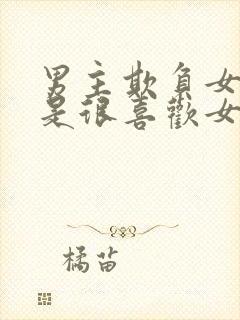 男主欺負女
是很喜歡女
橘苗